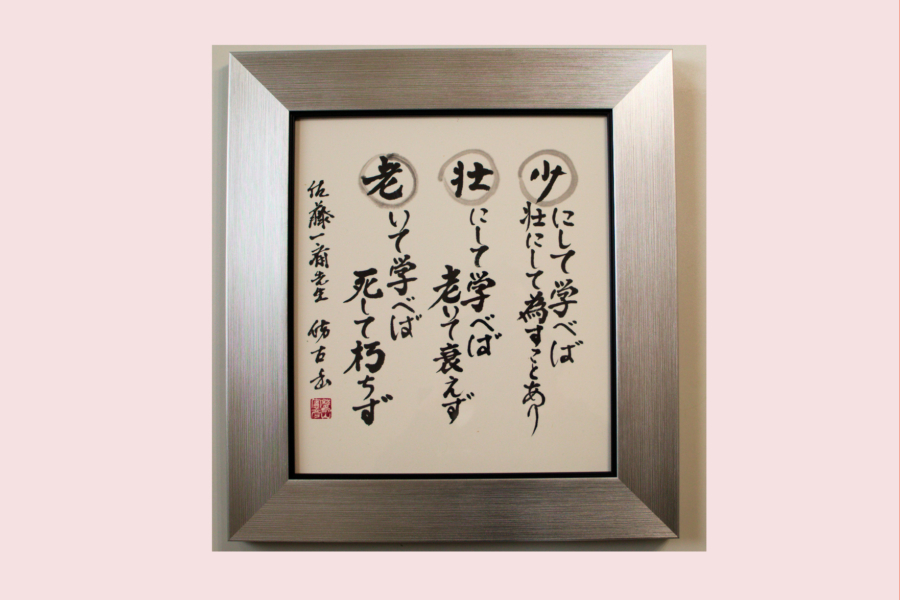 少にして学べば
壮にして為すことあり
壮にして学べば
老いて衰えず
老いて学べば
死して朽ちず
佐藤一斎先生